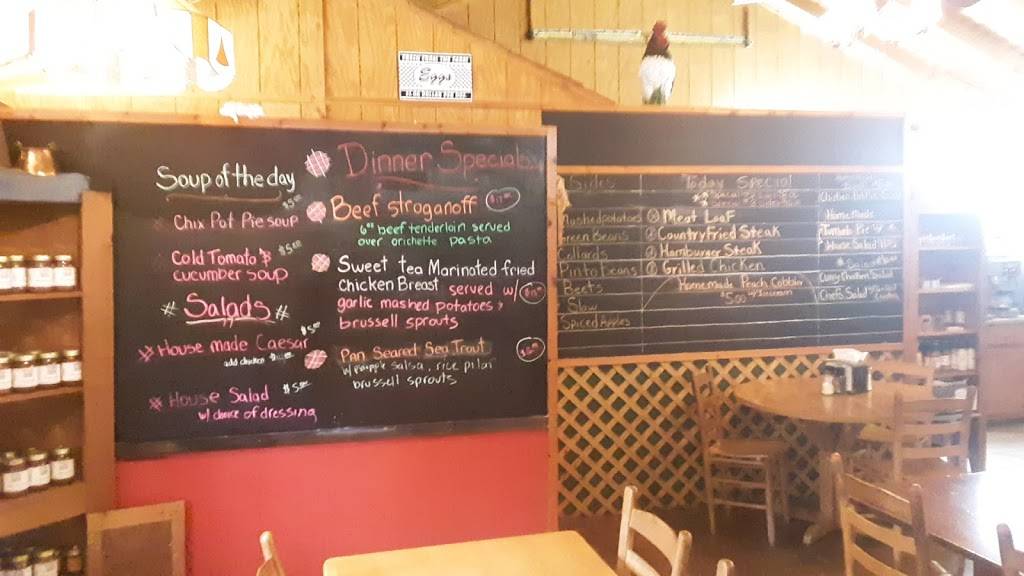 Eggs
Soup of the day
$5.00
Chix Pot Pie soup
Cold Tomato &
cucumber soup
$5.00
# Salads #
House made Caesar
$5.00
add chicken
House Salad
$5.00
w/ choice of dressing
Dinner Specials
Beef stroganoff
6oz beef tenderlain served
over orichette pasta
Sweet tea Marinated fried
Chicken Breast served w/
garlic mashed potatoes &
brussell sprouts
Pan Seared Sea Trout
w/ pineapple salsa, rice pilaf
brussell sprouts
Sides
Mashed potatoes
Green Beans
Collards
Pinto Beans
Beets
Slaw
Spiced Apples
Today Special
Meat Loaf
Country Fried Steak
Hamburger Steak
Grilled Chicken
Homemade Peach Cobbler
$5.00
Home Made
Tomato Pie
House Salad
Curry Chicken Salad
Chefs Salad